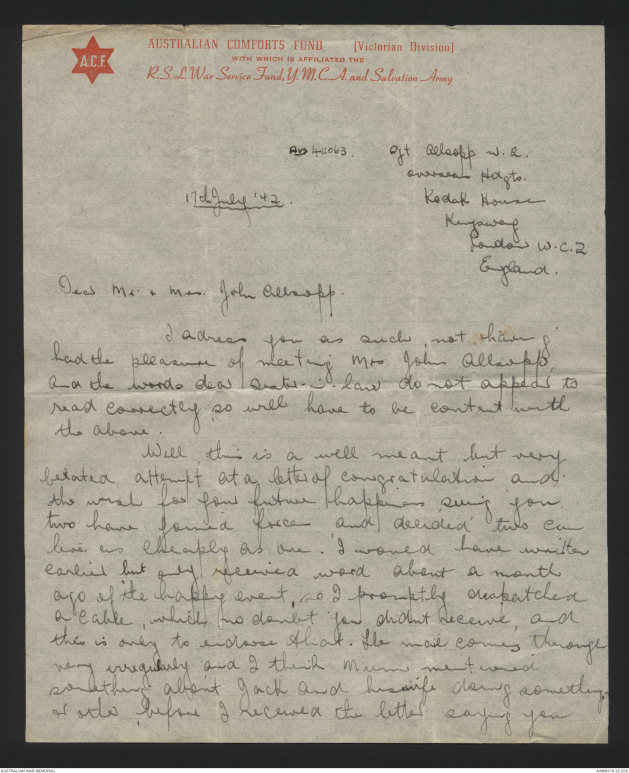 A.C.F.
AUSTRALIAN COMFORTS FUND [Victorian Division]
WITH WHICH IS AFFILIATED THE
R.S.L. War Service Fund, Y.M.C.A. and Salvation Army
Aus 411063. Sgt Allsopp W. R.
Overseas Hdqts.
17th July '42. Kodak House
Kingsway
London W.C.2
England.
Dear Mr. & Mrs. John Allsopp.
I adress you as such, not having
had the pleasure of meeting Mrs John Allsopp,
and the words dear sister-in-law do not appear to
read correctly, so will have to be content with
the above.
Well, this is a well meant but very
belated attempt at a letter of congratulation and
the wish for your future happiness, seeing you
two have joined forces and decided two can
live as cheaply as one. I would have written
earlier but only received word about a month
ago of the happy event, so I promptly despatched
a cable, which no doubt you didnt receive, and
this is only to endorse that. The mail comes through
very irregularly and I think Mum mentioned
something about Jack and his wife doing something
or other before I received the letter saying you
AUSTRALIAN WAR MEMORIAL